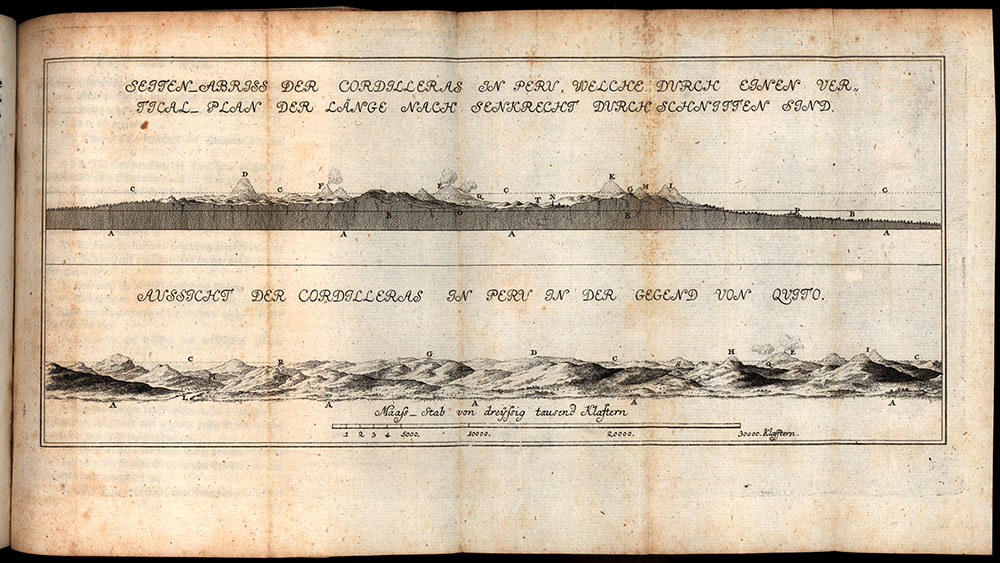 SEITEN_ABRISS DER CORDILLERAS IN PERU, WELCHE DURCH EINEN VER„
TICAL_ PLAN DER LÄNGE NACH SENKRECHT DURCH SCHNITTEN SIND.
D K
C C F E G H I G
G C T N
B O B R B
A A A A
AUSSICHT DER CORDILLERAS IN PERU IN DER GEGEND VON QUITO.
C R G D C H E I C
A A A A A
Maass_Stab von dreÿssig tausend Klaftern
1 2 3 4 5000. 10000. 20000. 30000. Klafftern.